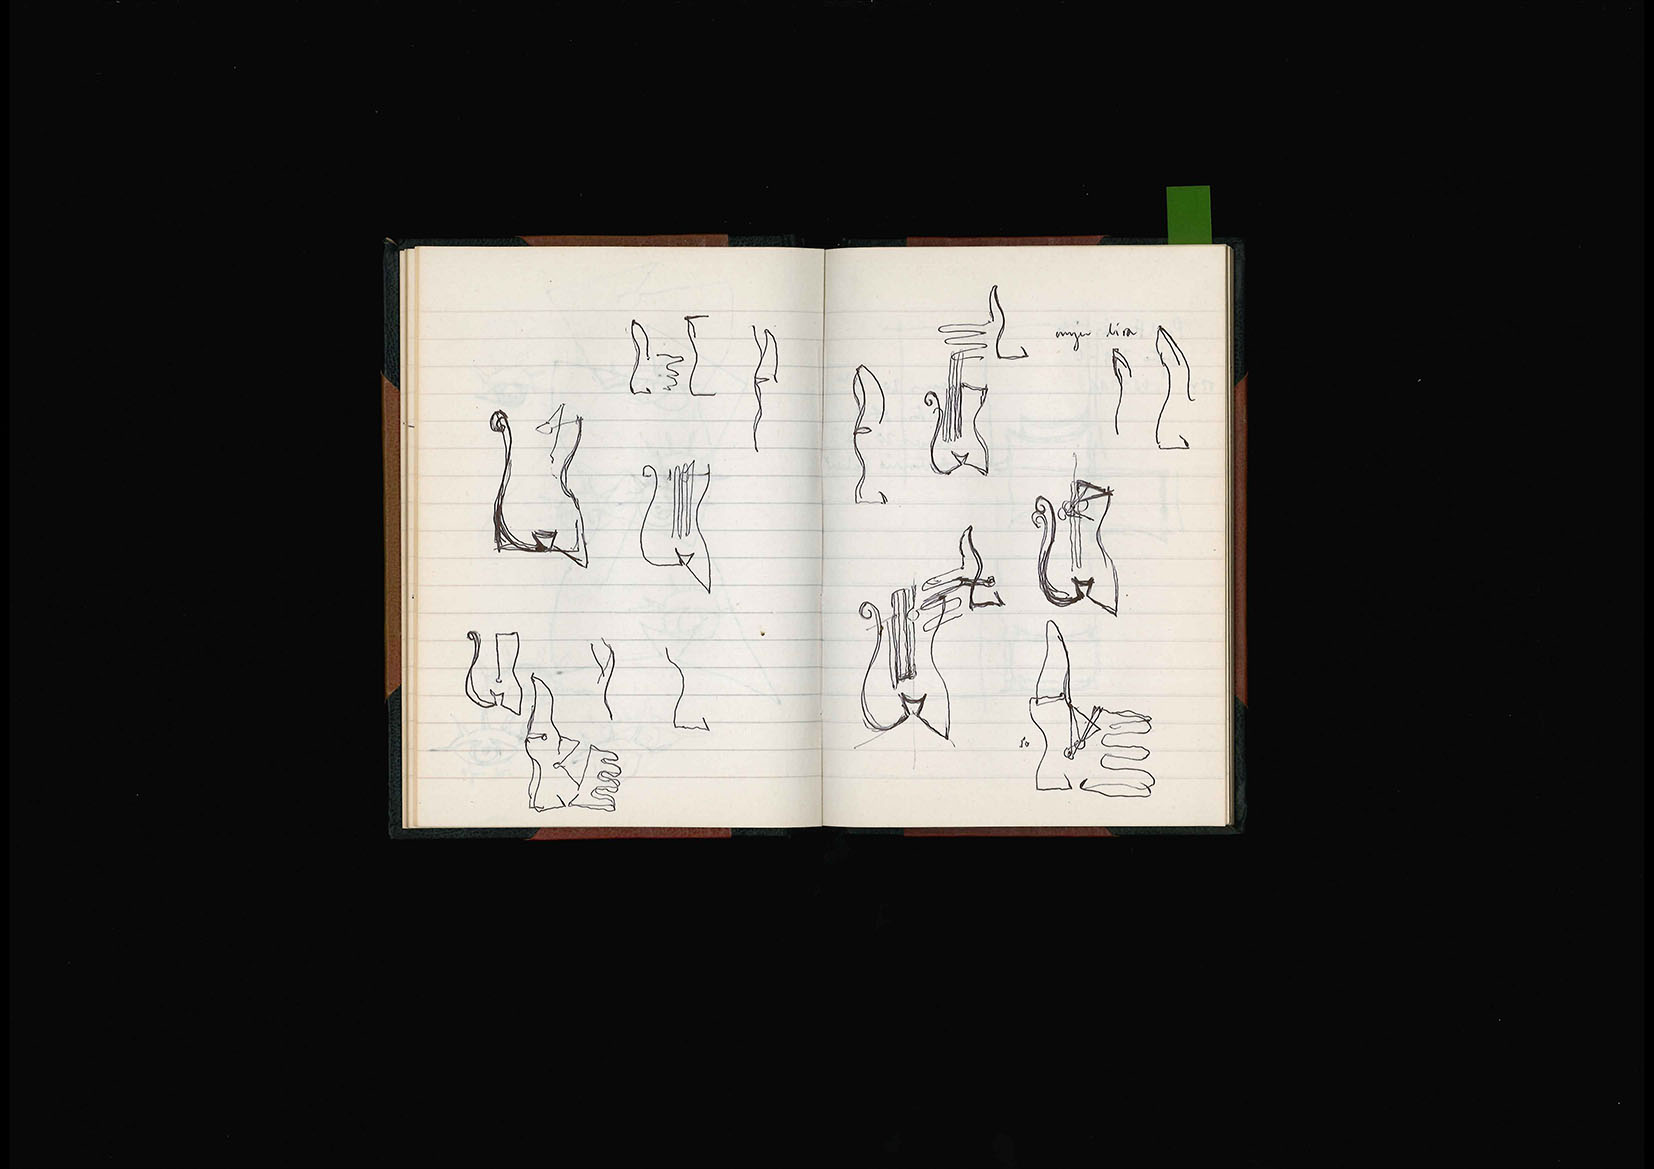 mujer lira
50